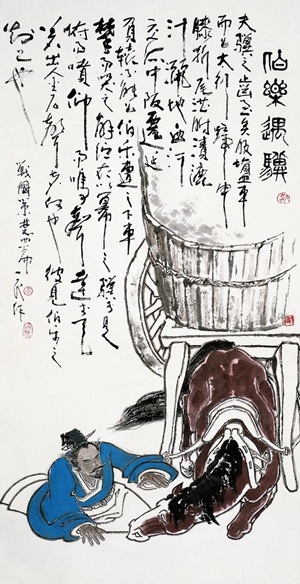 伯樂遇驥
夫驥之齒至矣服鹽車
而上太行蹄申
膝折尾湛胕潰漉
汁灑地白汗
交流中阪遷延
負轅不能上伯樂遭之下車
攀而哭之解紵衣以冪之驥于是
俛而噴仰而鳴聲達于天
若出金石聲者何也彼見伯樂之
知己也
戰國策楚四